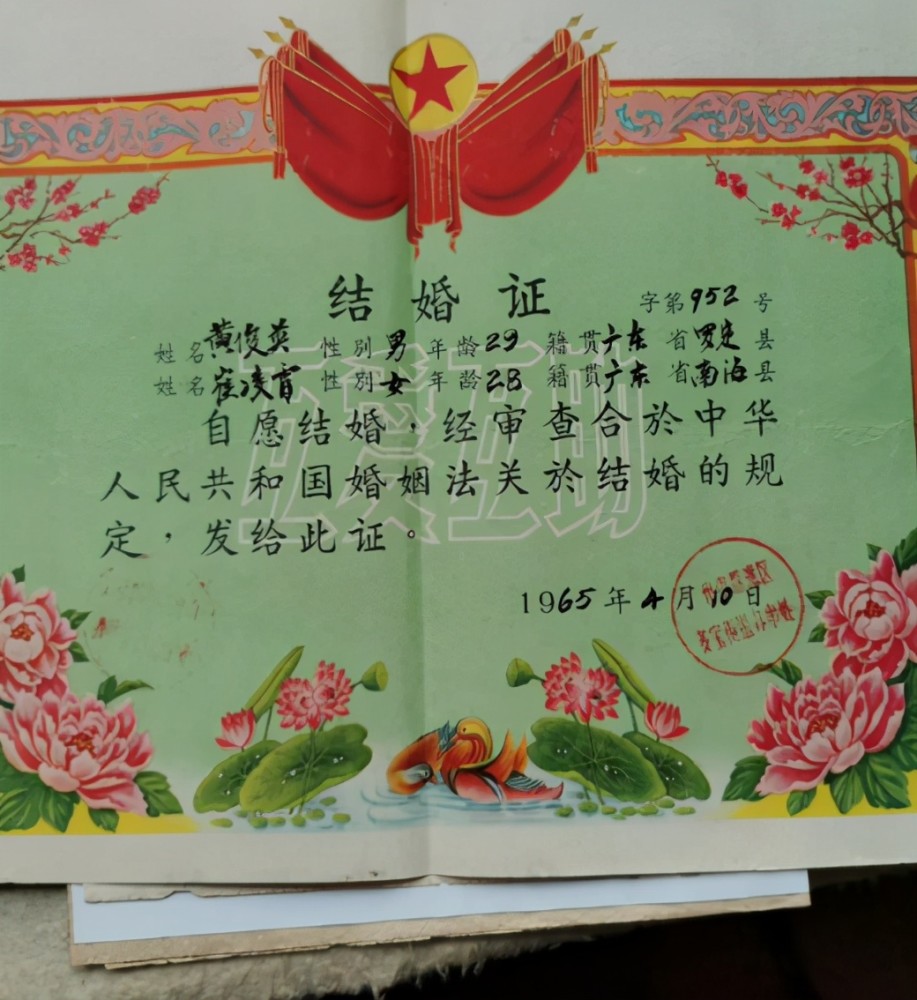 结婚证
字第952号
姓名黄俊英 性别男 年龄29 籍贯广东省罗定县
姓名崔凌霄 性别女 年龄28 籍贯广东省南海县
自愿结婚，经审查合於中华
人民共和国婚姻法关於结婚的规
定，发给此证。
互爱互助
1965年4月10日